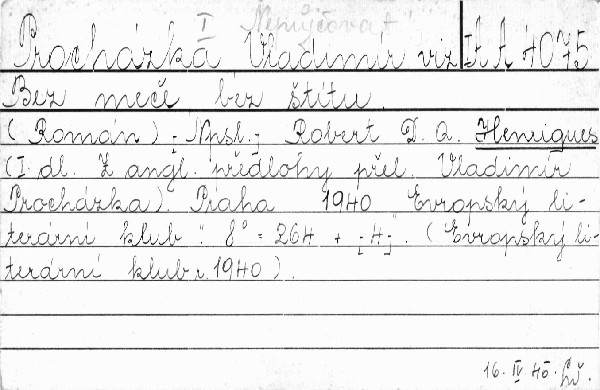 I Nepůjčovat
Procházka Vladimír viz II A 4075
Bez meče, bez štítu.
(Román). [Npsl.] Robert D. Q. Henriques
(I. díl. Z angl. předlohy přel. Vladimír
Procházka). Praha 1940 Evropský li-
terární klub. 8° - 264 + [4]. (Evropský li-
terární klub r. 1940).
16. IV. 40.